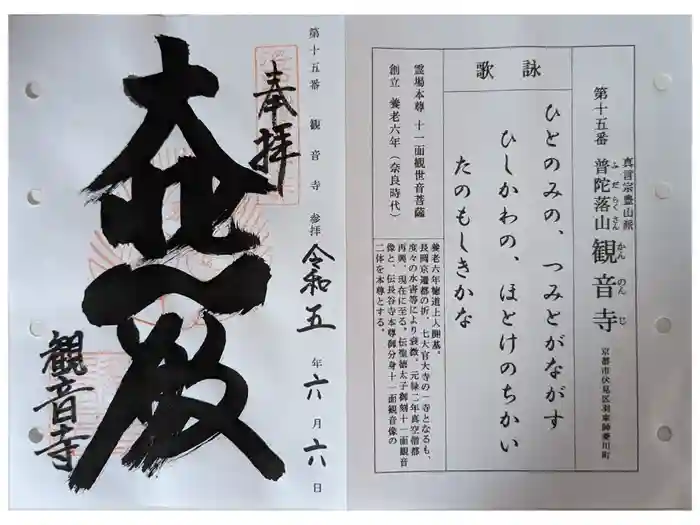 第十五番 観音寺 参拝 令和五年六月六日
奉拝
大悲殿
観音寺
真言宗豊山派
第十五番 普陀落山 観音寺
ふだらくさん かんのんじ
京都市伏見区羽束師菱川町
詠歌
ひとのみの、つみとがながす
ひしかわの、ほとけのちかい
たのもしきかな
霊場本尊 十一面観世音菩薩
創立 養老六年（奈良時代）
養老六年徳道上人開基。
長岡京遷都の折、七大官大寺の一寺となるも、
度々の水害等により衰微。元禄二年真空僧都
再興、現在に至る。伝聖徳太子御刻十一面観音
像と、伝長谷寺本尊御分身十一面観音像の
二体を本尊とする。